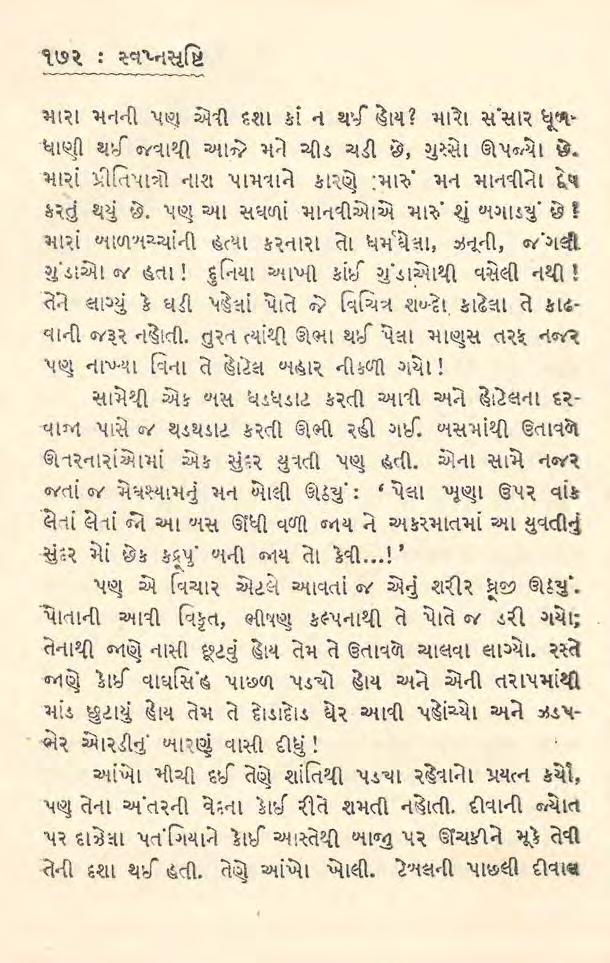 ૧૭૨ : સ્વપ્નસૃષ્ટિ
મારા મનની પણ એવી દશા કાં ન થઈ હોય? મારો સંસાર ધૂળ-
ધાણી થઈ જવાથી આજે મને ચીડ ચડી છે, ગુસ્સો ઊપજ્યો છે.
મારાં પ્રીતિપાત્રો નાશ પામવાને કારણે મારું મન માનવીનો દ્વેષ
કરતું થયું છે. પણ આ સઘળાં માનવીઓએ મારું શું બગાડ્યું છે!
મારાં બાળબચ્ચાંની હત્યા કરનારા તો ધર્મઘેલા, ઝનૂની, જંગલી
ગુંડાઓ જ હતા! દુનિયા આખી કાંઈ ગુંડાઓથી વસેલી નથી!
તેને લાગ્યું કે ઘડી પહેલાં પોતે જે વિચિત્ર શબ્દો કાઢેલા તે કાઢ-
વાની જરૂર નહોતી. તુરત ત્યાંથી ઊભા થઈ પેલા માણસ તરફ નજર
પણ નાખ્યા વિના તે હોટેલ બહાર નીકળી ગયો!
સામેથી એક બસ ધડધડાટ કરતી આવી અને હોટેલના દર-
વાજા પાસે જ થડથડાટ કરતી ઊભી રહી ગઈ. બસમાંથી ઉતાવળે
ઊતરનારાંઓમાં એક સુંદર યુવતી પણ હતી. એના સામે નજર
જતાં જ મેઘશ્યામનું મન બોલી ઊઠ્યું: ‘પેલા ખૂણા ઉપર વાંક
લેતાં લેતાં જો આ બસ ઊંધી વળી જાય ને અકસ્માતમાં આ યુવતીનું
સુંદર મોં છેક કદ્રૂપું બની જાય તો કેવી...!’
પણ એ વિચાર એટલે આવતાં જ એનું શરીર ધ્રૂજી ઊઠ્યું.
પોતાની આવી વિકૃત, ભીષણ કલ્પનાથી તે પોતે જ ડરી ગયો;
તેનાથી જાણે નાસી છૂટવું હોય તેમ તે ઉતાવળે ચાલવા લાગ્યો. રસ્તે
જાણે કોઈ વાઘસિંહ પાછળ પડ્યો હોય અને એની તરાપમાંથી
માંડ છુટાયું હોય તેમ તે દોડાદોડ ઘેર આવી પહોંચ્યો અને ઝડપ-
ભેર ઓરડીનું બારણું વાસી દીધું!
આંખો મીચી દઈ તેણે શાંતિથી પડ્યા રહેવાનો પ્રયત્ન કર્યો,
પણ તેના અંતરની વેદના કોઈ રીતે શમતી નહોતી. દીવાની જ્યોત
પર દાઝેલા પતંગિયાને કોઈ આસ્તેથી બાજુ પર ઊંચકીને મૂકે તેવી
તેની દશા થઈ હતી. તેણે આંખો ખોલી. ટેબલની પાછલી દીવાલ